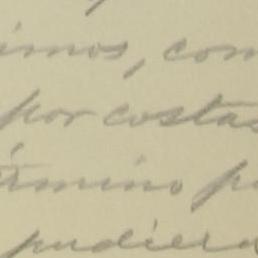 imos, com
por costas
érmino p
pudiera